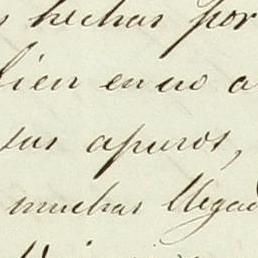 s hechas por
bien en no a
sus apuros,
muchas llegad